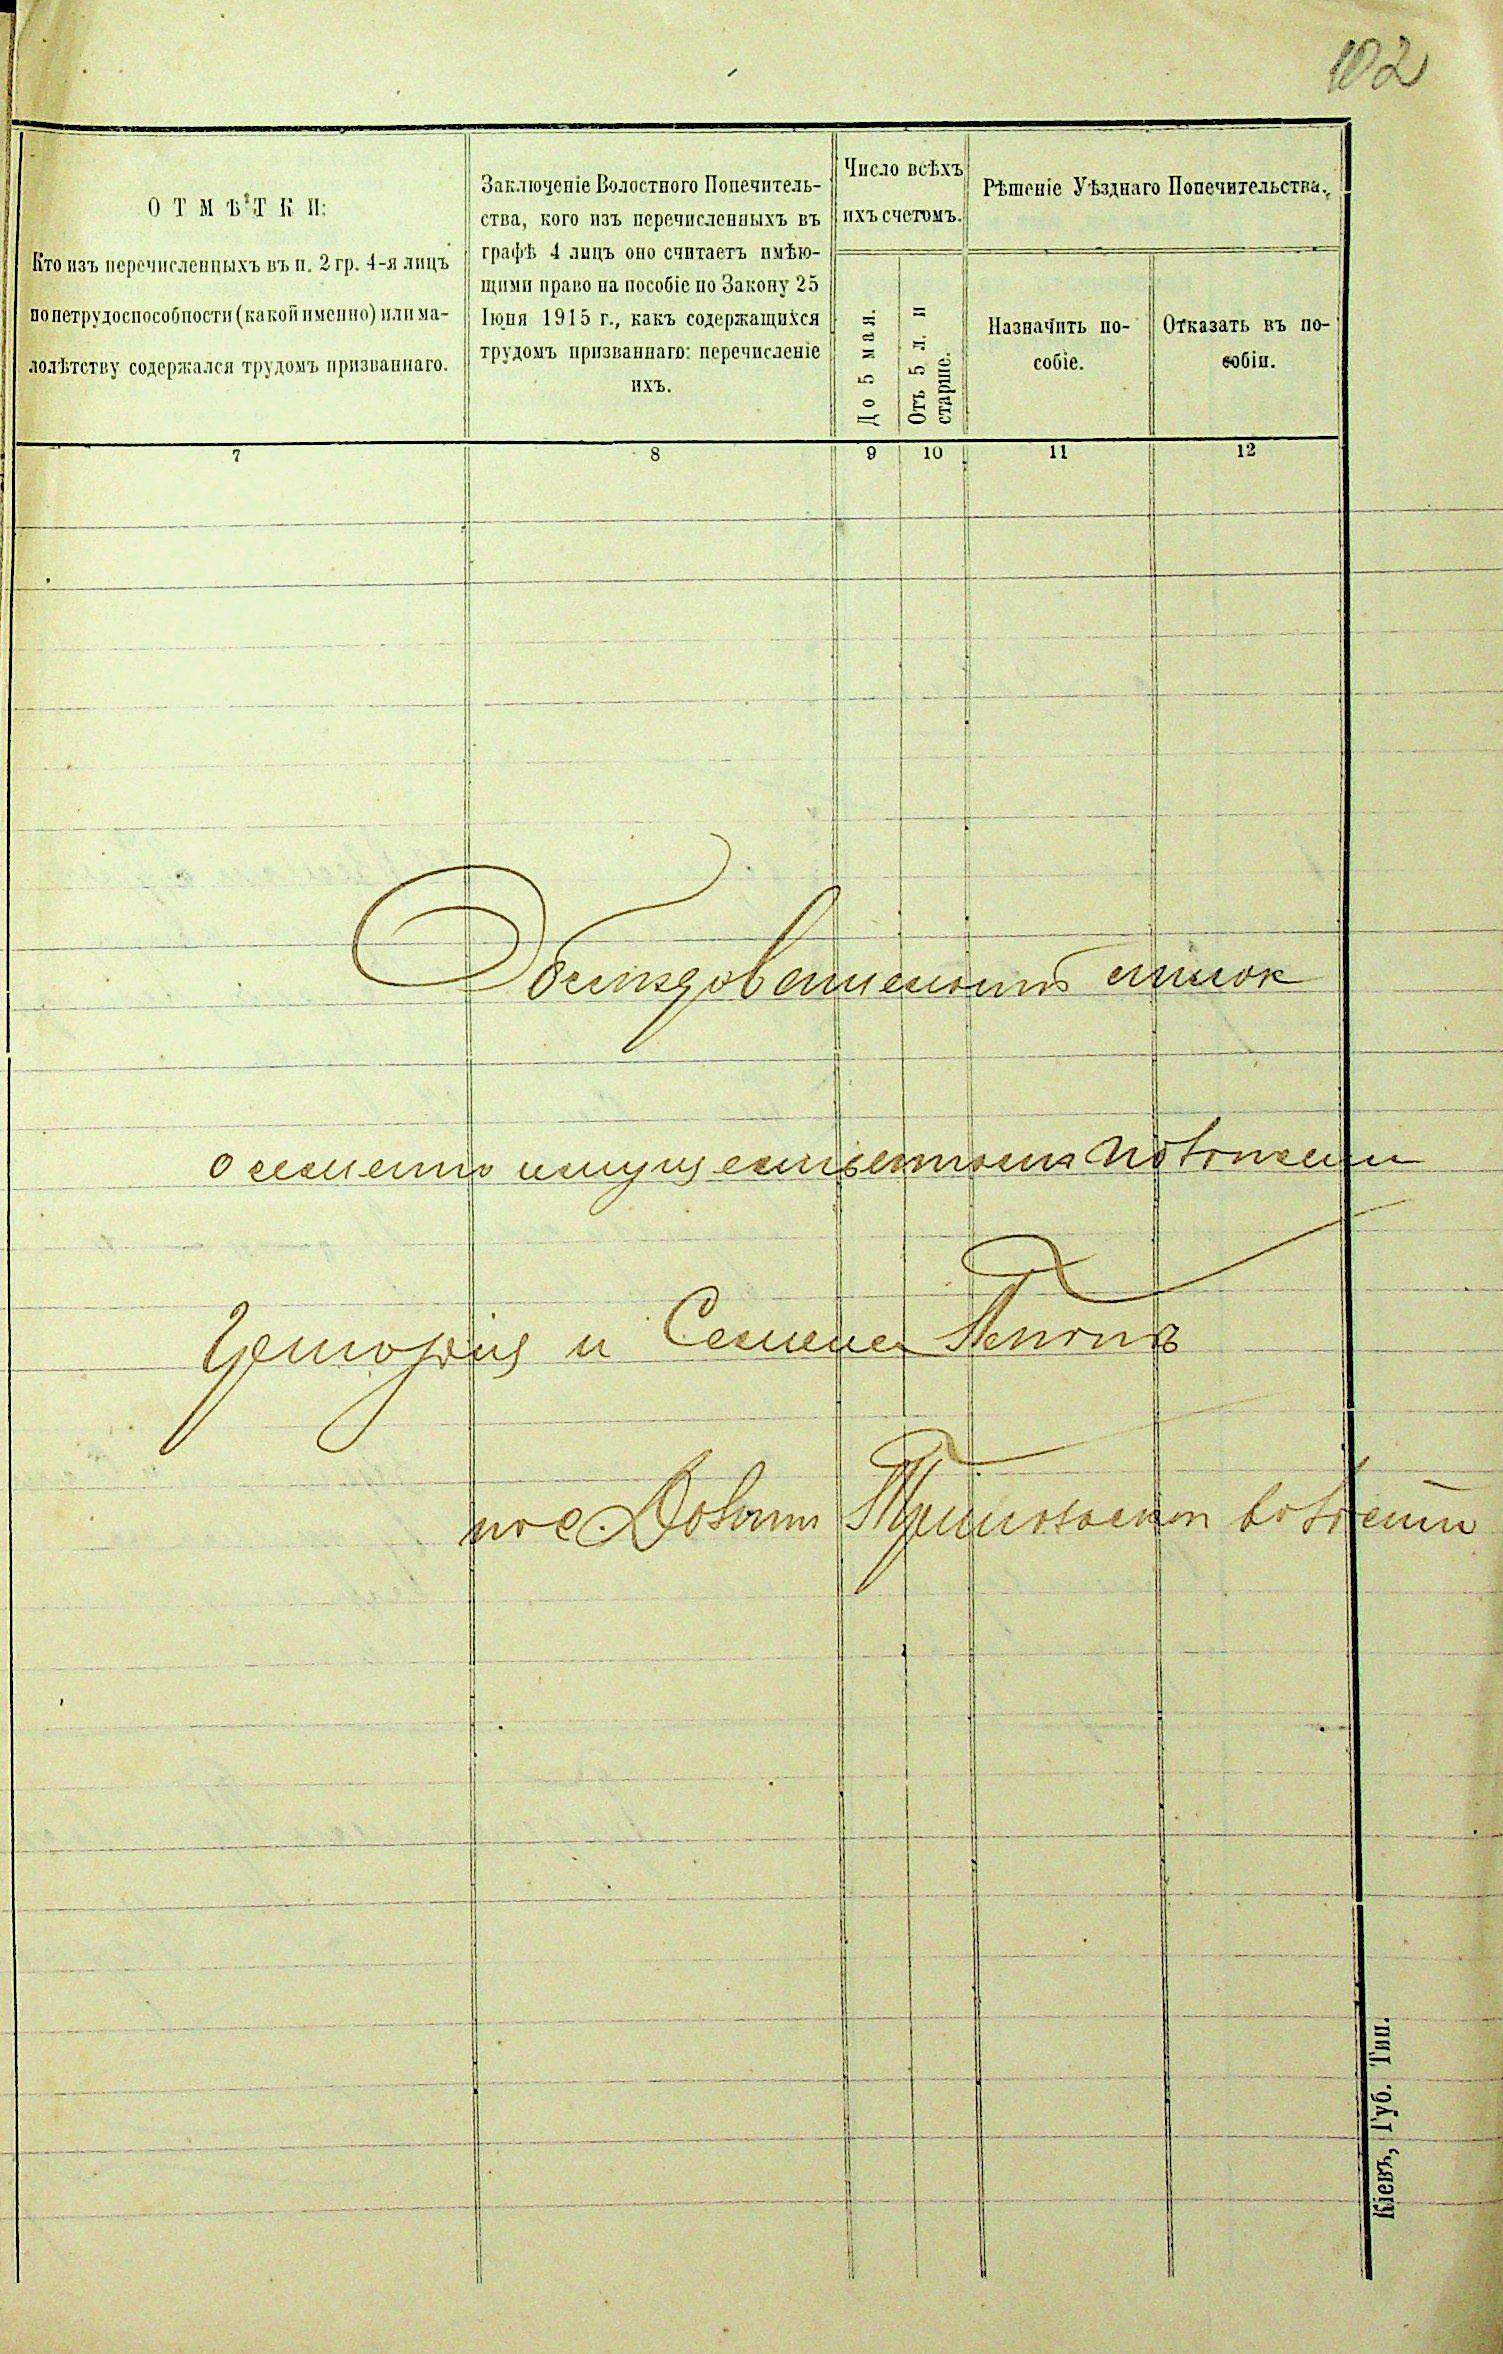 102
ОТМѢТКИ:
Кто изъ перечисленныхъ въ п. 2 гр. 4-я лицъ
по нетрудоспособности (какой именно) или ма-
лолѣтству содержался трудомъ призваннаго.
Заключеніе Волостного Попечитель-
ства, кого изъ перечисленныхъ въ
графѣ 4 лицъ оно считаетъ имѣю-
щими право на пособіе по Закону 25
Іюня 1915 г., какъ содержащихся
трудомъ призваннаго: перечисленіе
ихъ.
Число всѣхъ
ихъ счетомъ.
До 5 мая.
Отъ 5 л. и
старше.
Рѣшеніе Уѣзднаго Попечительства.
Назначить по-
собіе.
Отказать въ по-
собіи.
7 8 9 10 11 12
список
о семейно имущественном положении
и Семена
по с. волости
Кіевъ, Губ. Тип.